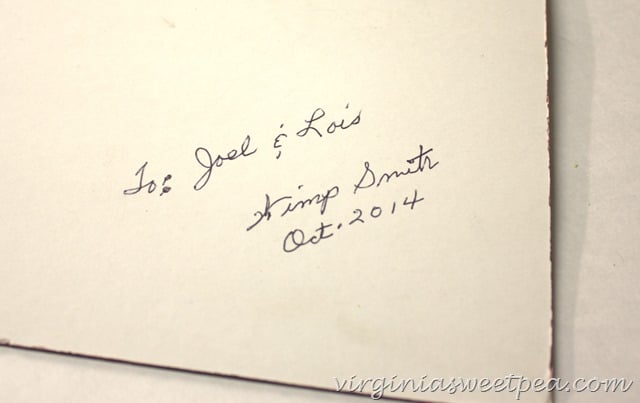 To: Joel & Lois
Kimp Smith
Oct. 2014
virginiasweetpea.com